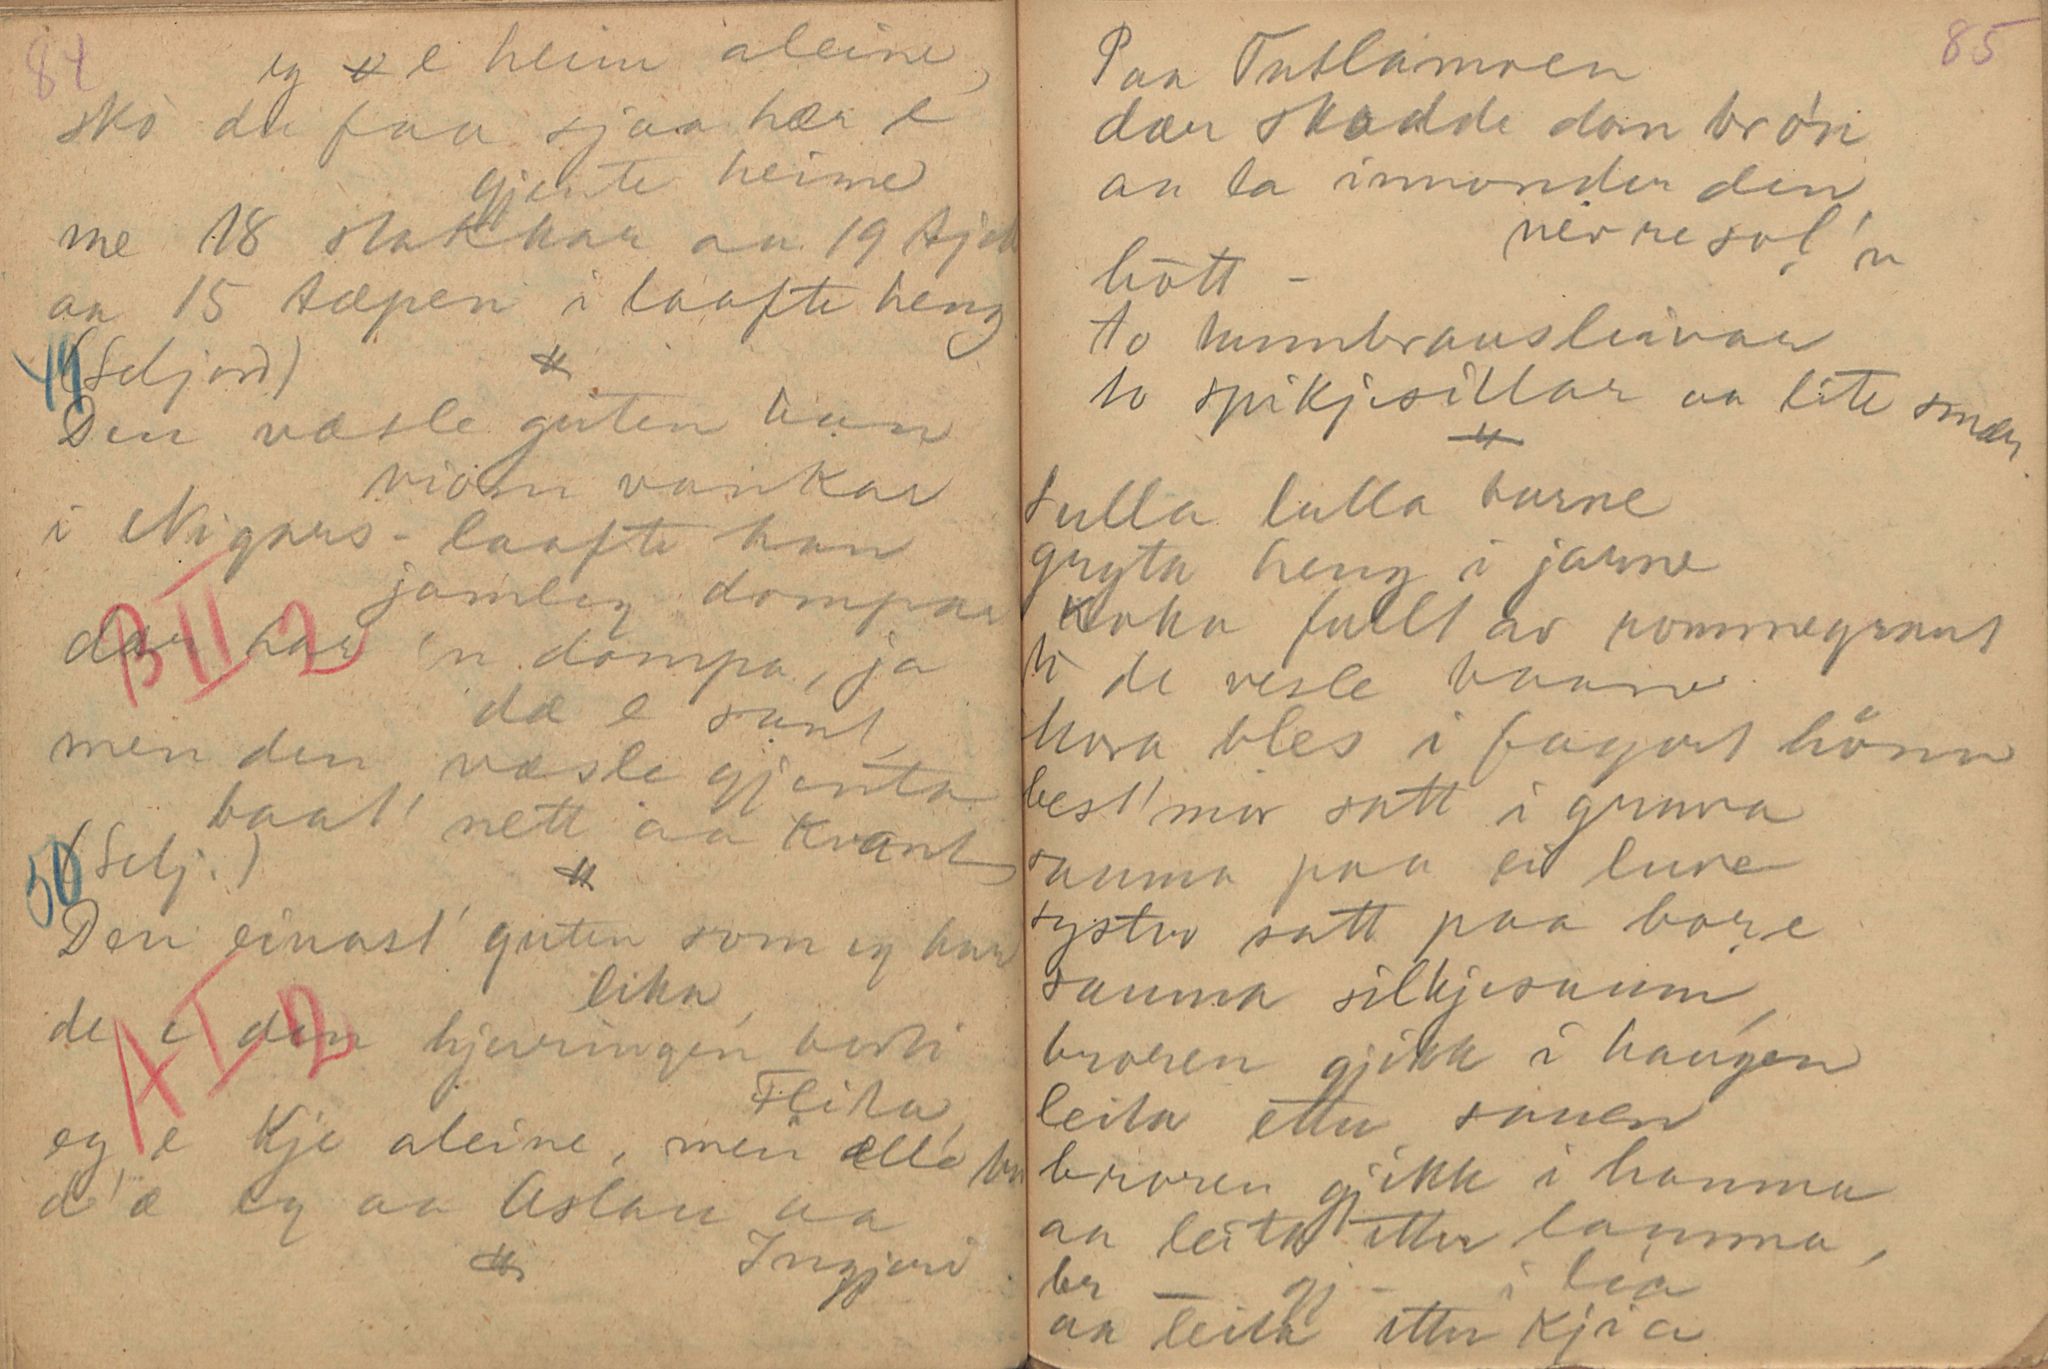 84
eg e heim aleine,
sko du faa sjaa hær e
gjente heime
me 18 stakkar aa 19
aa 15 tæpen i laafte heng
49 (Seljord)
Den væsle guten han
viom vankar
i Nigars-laafte han
jamleg dompar
BII2
dær har 'n dompa, ja
dæ e sant,
men den væsle gjenta
baat' nett aa kvant
50 (Selj.)
Den einast' guten som eg har
lika,
AI2
de e den kjeringen burti
Flita,
eg e kje aleine, men elle
d'æ eg aa Aslau aa
Ingjeri.
85
Paa Tutlamoen
dær skodde dom brón
aa ta innonder den
nérre sol'n
hött -
to tunnbrausleivar
to spikjesillar aa lite smør
Sulla lulla barne
gryta heng i jarne
koka fullt av rommegraut
ti de vesle baane
Mora bles i fagort hönn
best'mor satt i gruva
sauma paa ei luve
syster satt paa bore
sauma silkjesaum,
broren gjikk i haugen
leita etter sauen
broren gjikk i hamma
aa leita etter lamma,
br — gj - i lia
aa leita etter kjia